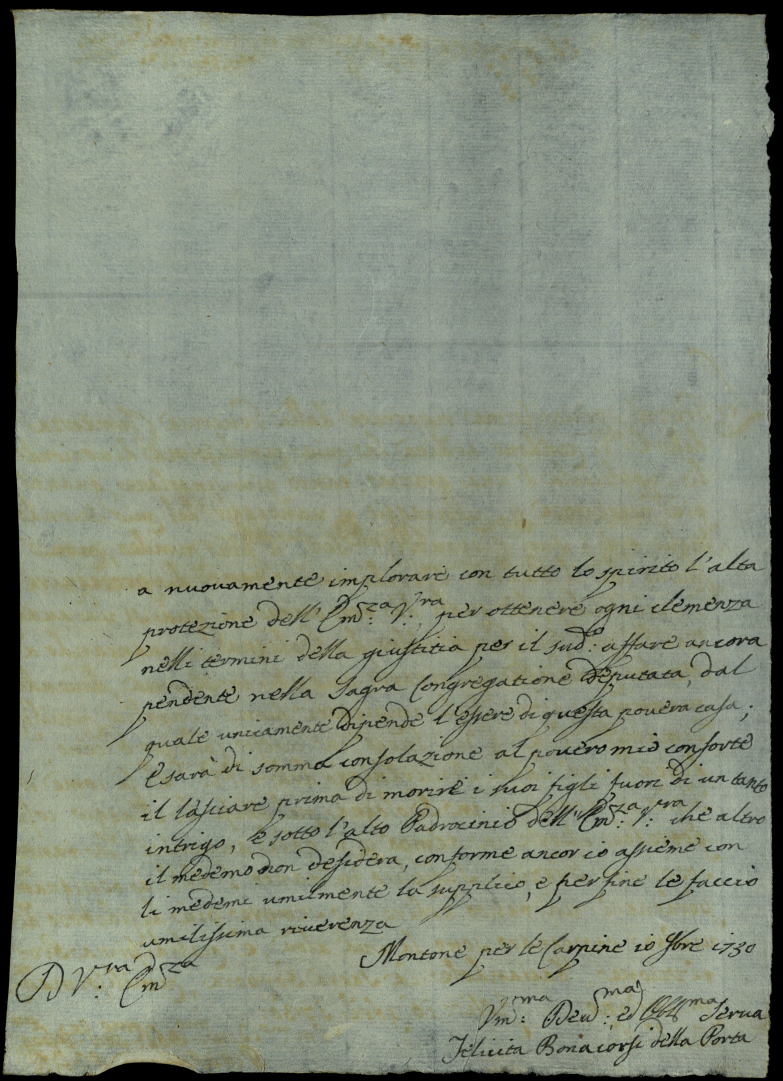 a nuovamente implorare con tutto lo spirito l'alta
protezione dell'Em:za V:ra, per ottenere ogni clemenza
nelli termini della giustitia per il sud:o affare ancora
pendente nella Sagra Congregatione Deputata, dal
quale unicamente dipende l'essere di questa povera casa;
e sarà di somma consolazione al povero mio consorte
il lasciare prima di morire i suoi figli fuori di un tanto
intrigo, e sotto l'alto Padrocinio dell'Em:za V:ra che altro
il medemo non desidera, conforme ancor io assieme con
li medemi umilmente la supplico, e per fine le faccio
umilissima riverenza
Montone per le Carpine 10 9bre 1730
D V:ra Em:za
Um:ma Dev:ma ed Obb:ma Serva
Felicita Bonacorsi della Porta